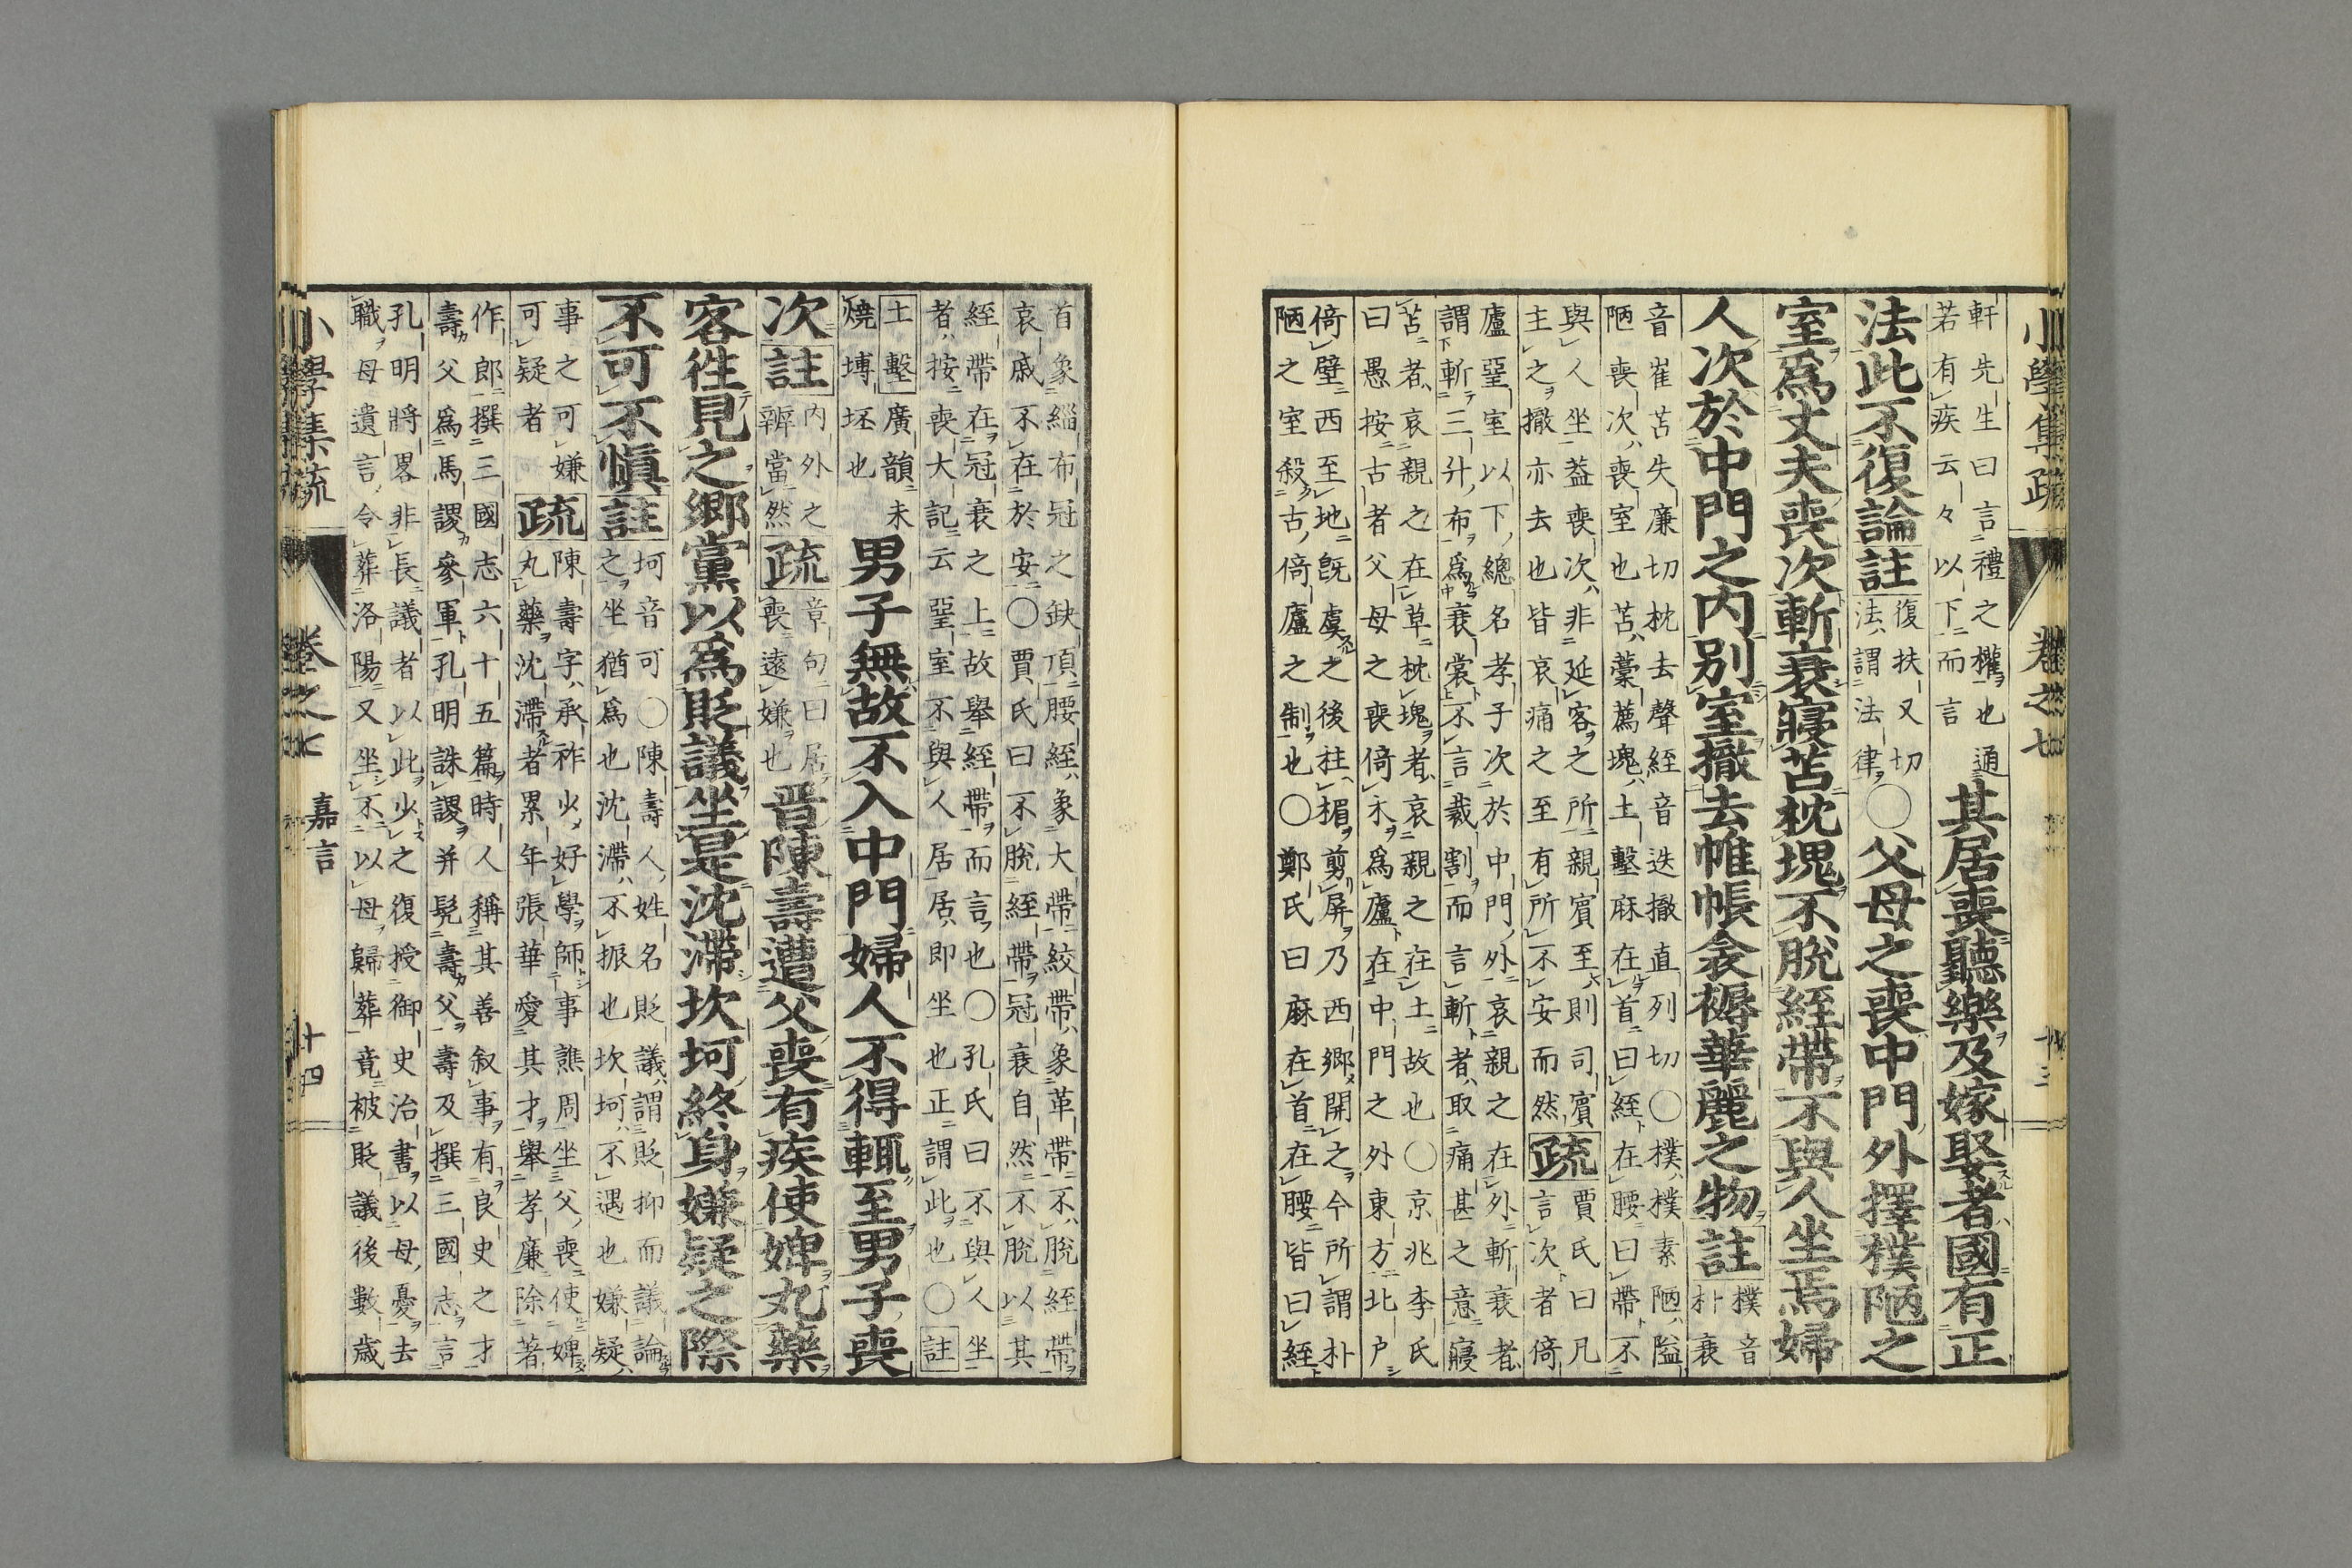 小學集疏 卷之七 十三
軒先生曰言禮之權也通
若有疾云々以下而言
其居喪聽樂及嫁娶者國有正
法此不復論註
復扶又切
法謂法律
〇父母之喪中門外擇樸陋之
室爲丈夫喪次斬衰寢苫枕塊不脫絰帶不與人坐焉婦
人次於中門之内別室撤去帷帳衾褥華麗之物註
樸音
朴衰
音崔苫失廉切枕去聲絰音迭撤直列切〇樸樸素陋隘
陋喪次喪室也苫藁薦塊土墼麻在首曰絰在腰曰帶不
與人坐蓋喪次非延客之所親賓至則司賓
主之撤亦去也皆哀痛之至有所不安而然
疏
賈氏曰凡
言次者倚
廬堊室以下總名孝子次於中門外哀親之在外斬衰者
謂斬三升布爲衰裳不言裁割而言斬者取痛甚之意寢
苫者哀親之在草枕塊者哀親之在土故也〇京兆李氏
曰愚按古者父母之喪倚木爲廬在中門之外東方北戶
倚壁西至地既虞之後柱楣剪屏乃西鄉開之今所謂朴
陋之室殺古倚廬之制也〇鄭氏曰麻在首在腰皆曰絰
首象緇布冠之缺頂腰絰象大帶絞帶象革帶不脫絰帶
哀戚不在於安〇賈氏曰不脫絰帶冠衰自然不脫以其
絰帶在冠衰之上故舉絰帶而言也〇孔氏曰不與人坐
者按喪大記云堊室不與人居居即坐也正謂此也〇註
土墼廣韻未
燒塼坯也
男子無故不入中門婦人不得輒至男子喪
次註
内外之
辨當然
疏
章句曰居
喪遠嫌也
晉陳壽遭父喪有疾使婢丸藥
客徃見之鄉黨以爲貶議坐是沈滯坎坷終身嫌疑之際
不可不愼註
坷音可〇陳壽人姓名貶議謂貶抑而議論
之坐猶爲也沈滯不振也坎坷不遇也嫌疑
事之可嫌
可疑者
疏
陳壽字承祚少好學師事譙周坐父喪使婢
丸藥沈滯者累年張華愛其才舉孝廉除著
作郎撰三國志六十五篇時人稱其善叙事有良史之才
壽父爲馬謖參軍孔明誅謖并髡壽父壽及撰三國志言
孔明將畧非長議者以此少之復授御史治書以母憂去
職母遺言令葬洛陽又坐不以母歸葬竟被貶議後數歲
小學集疏 卷之七 嘉言 十四